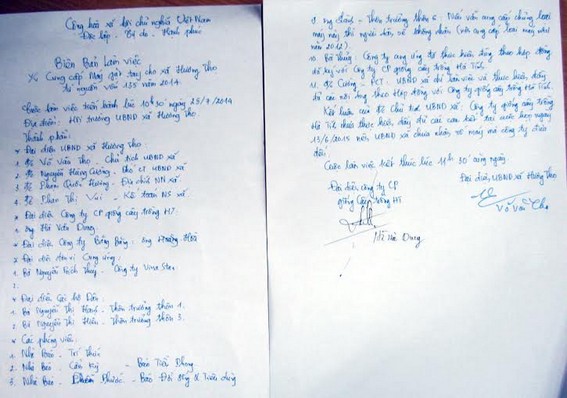 Cộng hòa xã hội chủ nghĩa Việt Nam
Độc lập - Tự do - Hạnh phúc
Biên Bản làm việc
V/v Cung cấp Máy gặt tay cho xã Hương Thọ
từ nguồn vốn 135 năm 2014
Cuộc làm việc tiến hành lúc 10h30 ngày 25/9/2014
Địa điểm: Hội trường UBND xã Hương Thọ
Thành phần:
* Đại diện UBND xã Hương Thọ
1. Đ/c Võ Văn Thọ - Chủ tịch UBND xã
2. Đ/c Nguyễn Hùng Cường - Phó CT UBND xã
3. Đ/c Phạm Quốc - Địa chính NN xã
4. Đ/c Phan Thị - Kế toán NS xã
* Đại diện Công ty CP giống cây trồng HT
1. Ông Hồ Viết Dung
* Đại diện Công ty Bông Băng: ông Hoàng
* Đại diện đơn vị Cung ứng:
1. Bà Nguyễn Bích Thủy - Công ty Vina Star
2.
* Đại diện Các hộ Dân:
1. Bà Nguyễn Thị - Thôn trưởng thôn 1.
2. Bà Nguyễn Thị Hiền - Thôn trưởng thôn 3.
* Các phóng viên:
1. Nhà Báo - Trí Thức
2. Nhà Báo: - Báo Tiền Phong
3. Nhà Báo - Phước - Báo Đời Sống & Tiêu dùng
9. ông - Thôn trưởng thôn 6: Nếu vẫn cung cấp chủng loại
máy này thì người dân sẽ không nhận (nếu cung cấp loại máy như
năm 2012).
10. Bà Thủy: Công ty cung ứng sẽ thực hiện đúng theo hợp đồng
đã ký với Công ty CP giống cây trồng Hà Tĩnh.
11. Đ/c Cường - PCT. UBND xã chỉ làm việc và thực hiện đúng
các nội dung theo Hợp đồng với Công ty giống cây trồng Hà Tĩnh.
Kết luận của Đ/c Chủ tịch UBND xã: Công ty giống cây trồng
Hà Tĩnh chưa thực hiện đầy đủ các cam kết tại cuộc họp ngày
13/6/2015 nên UBND xã chưa nhận số nông cụ mà công ty đưa
đến.
Cuộc làm việc kết thúc lúc 11h 30' cùng ngày
Đại diện công ty CP
giống Cây trồng HT
Đại diện UBND xã Hương Thọ
Hồ Viết Dung
Võ Văn Thọ